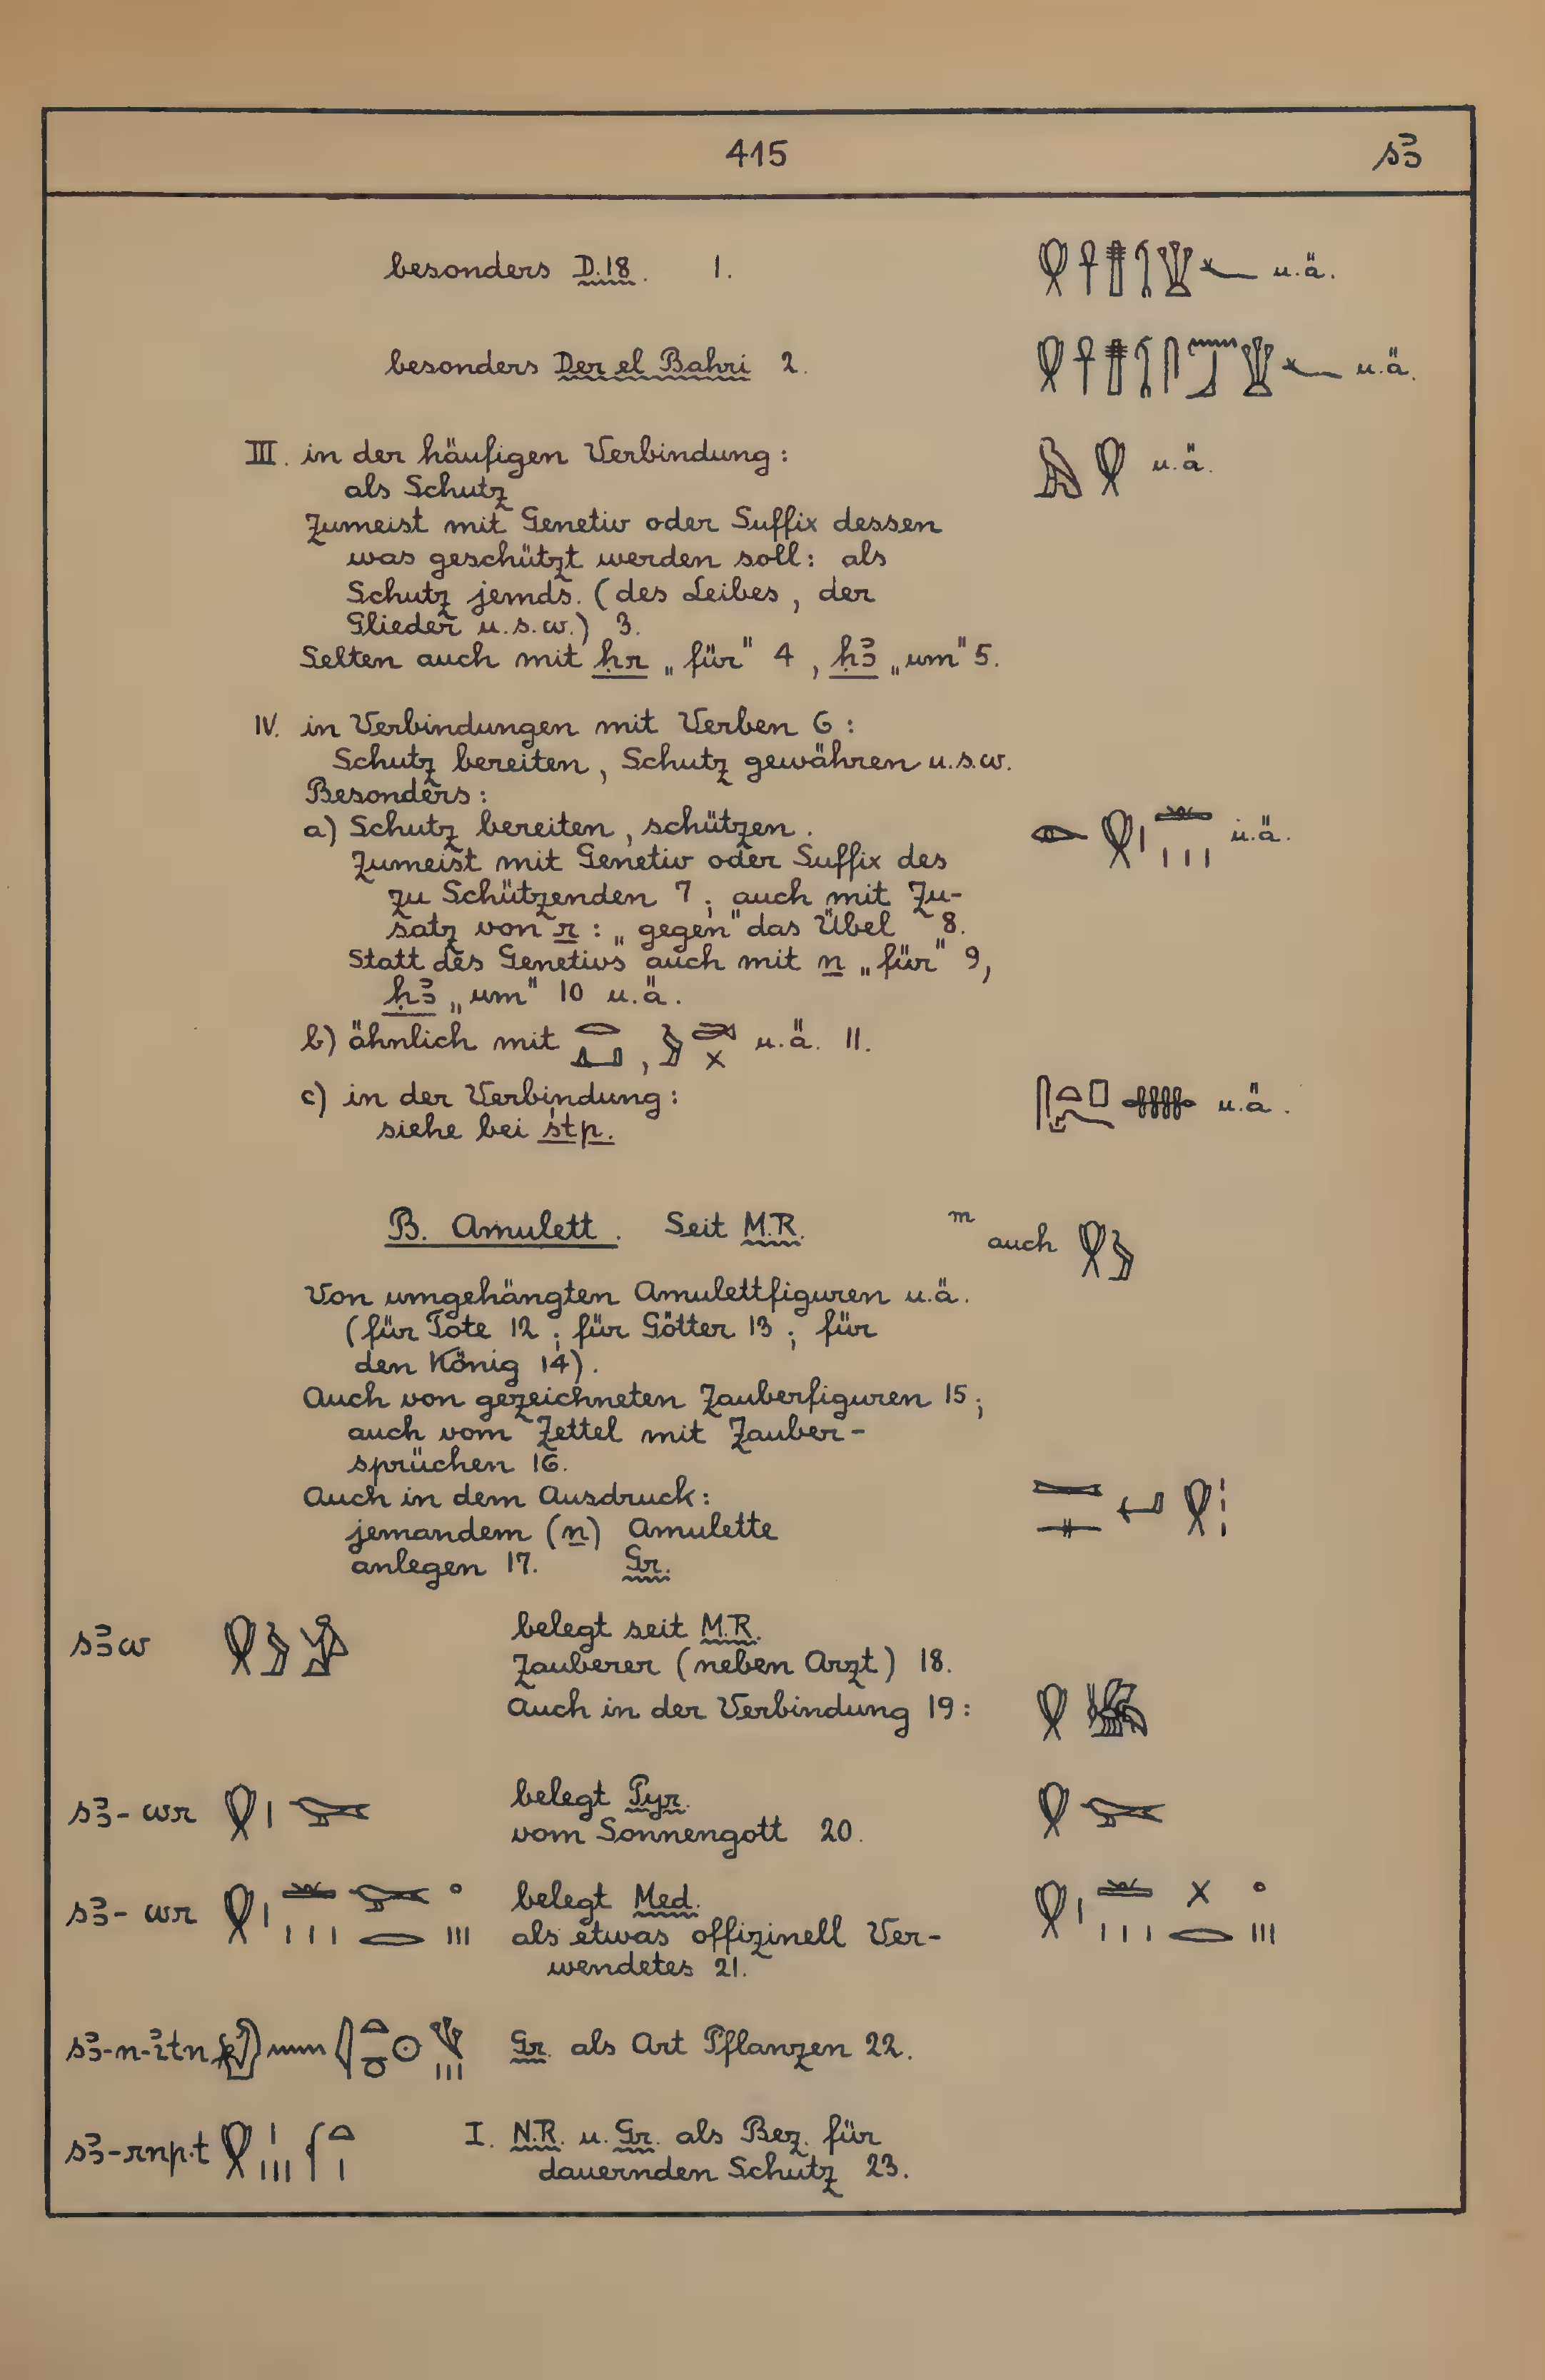 415 sꜣ
besonders D.18. 1. u.ä.
besonders Der el Bahri 2. u.ä.
III. in der häufigen Verbindung: u.ä.
als Schutz
Zumeist mit Genetiv oder Suffix dessen
was geschützt werden soll: als
Schutz jemds. (des Leibes, der
Glieder u.s.w.) 3.
Selten auch mit ḥr „für" 4, ḥꜣ „um" 5.
IV. in Verbindungen mit Verben 6:
Schutz bereiten, Schutz gewähren u.s.w.
Besonders:
a) Schutz bereiten, schützen. u.ä.
Zumeist mit Genetiv oder Suffix des
zu Schützenden 7; auch mit Zu-
satz von r: „gegen" das Übel 8.
Statt des Genetivs auch mit n „für" 9,
ḥꜣ „um" 10 u.ä.
b) ähnlich mit , u.ä. 11.
c) in der Verbindung: u.ä.
siehe bei stp.
B. Amulett. Seit M.R. m auch
Von umgehängten Amulettfiguren u.ä.
(für Tote 12; für Götter 13; für
den König 14).
Auch von gezeichneten Zauberfiguren 15;
auch vom Zettel mit Zauber-
sprüchen 16.
Auch in dem Ausdruck:
jemandem (n) Amulette
anlegen 17. Gr.
sꜣw belegt seit M.R.
Zauberer (neben Arzt) 18.
Auch in der Verbindung 19:
sꜣ-wr belegt Pyr.
vom Sonnengott 20.
sꜣ-wr belegt Med.
als etwas offizinell Ver-
wendetes 21.
sꜣ-n-ꞽtn Gr. als Art Pflanzen 22.
sꜣ-rnp.t I. N.R. u. Gr. als Bez. für
dauernden Schutz 23.